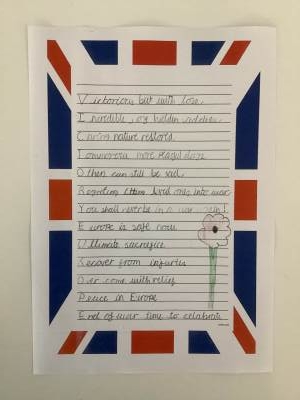 Victorious but with loss
Incredible joy hidden
Caring nature restors
Tomorrow more
Others can still be sad
Regretting loved ones into war
You shall never be in a war again
Europe is safe now
Ultimate sacrifice
Recover from injuries
Over come with relief
Peace in Europe
End of war time to celebrate